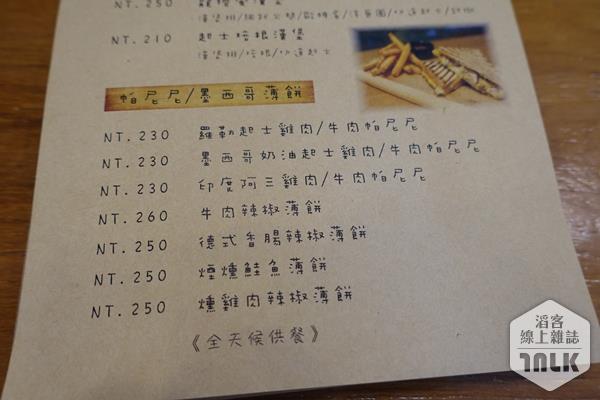 NT. 250
漢堡排/
NT. 210 起士培根漢堡
漢堡排/培根/切達起士
帕尼尼/墨西哥薄餅
NT. 230 羅勒起士雞肉/牛肉帕尼尼
NT. 230 墨西哥奶油起士雞肉/牛肉帕尼尼
NT. 230 印度阿三雞肉/牛肉帕尼尼
NT. 260 牛肉辣椒薄餅
NT. 250 德式香腸辣椒薄餅
NT. 250 煙燻鮭魚薄餅
NT. 250 燻雞肉辣椒薄餅
《全天候供餐》
滔客
線上雜誌
TALK